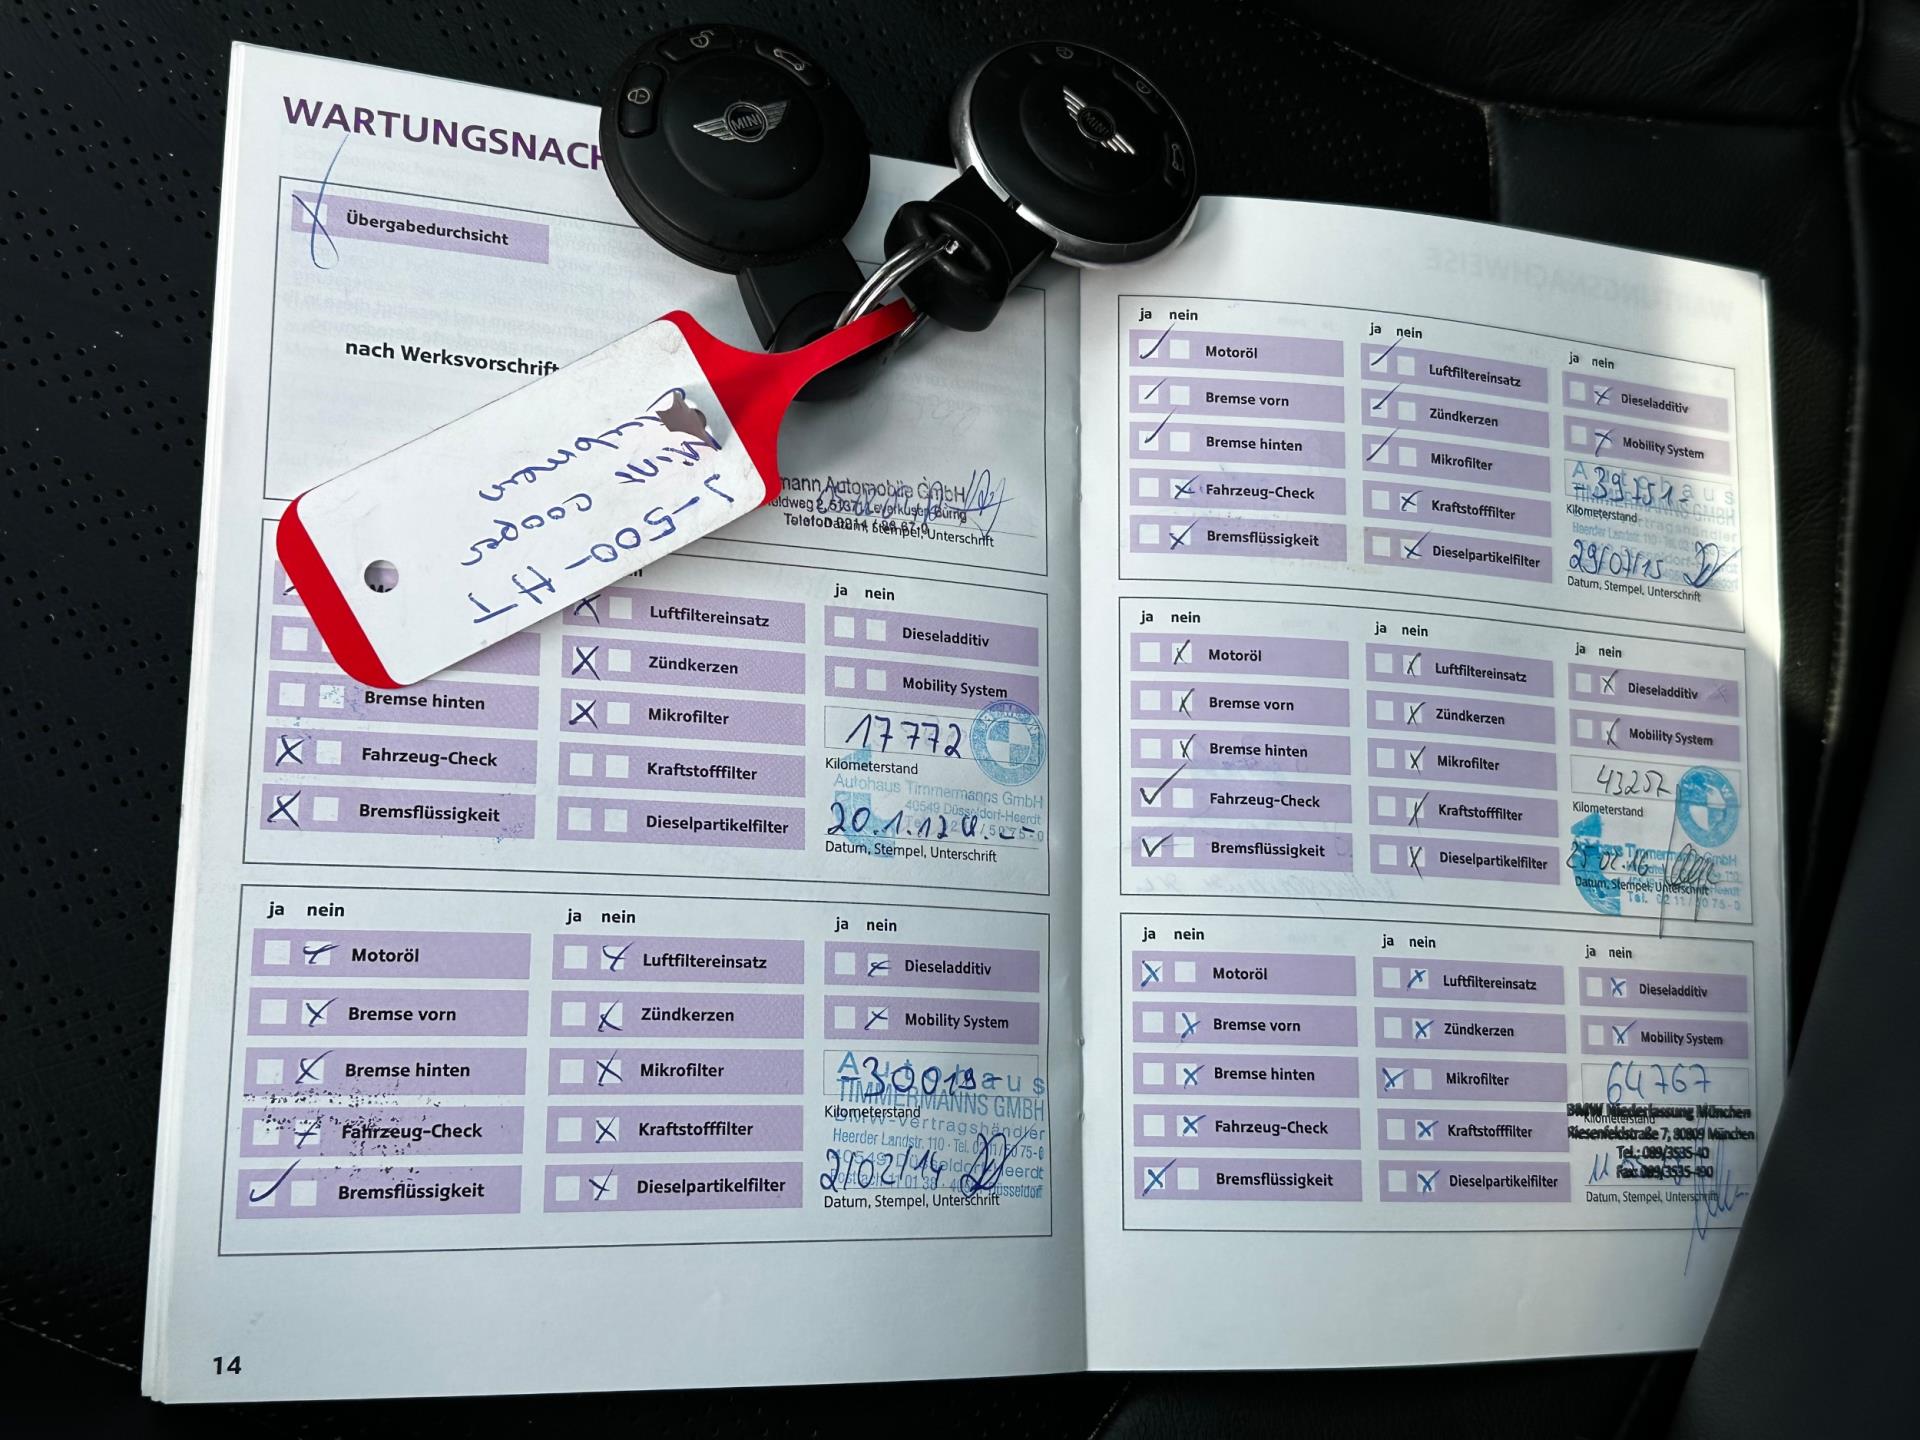 WARTUNGSNACH
Übergabedurchsicht
nach Werksvorschrift
MINI
MINI
J-500-HT
Mini Cooper
Clubman
mann Automobile GmbH
Datum, Stempel, Unterschrift
Bremse hinten
Fahrzeug-Check
Bremsflüssigkeit
Luftfiltereinsatz
Zündkerzen
Mikrofilter
Kraftstofffilter
Dieselpartikelfilter
ja nein
Dieseladditiv
Mobility System
17772
Kilometerstand
Autohaus Timmermanns GmbH
40549 Düsseldorf-Heerdt
20.1.12
Datum, Stempel, Unterschrift
ja nein
Motoröl
Bremse vorn
Bremse hinten
Fahrzeug-Check
Bremsflüssigkeit
ja nein
Luftfiltereinsatz
Zündkerzen
Mikrofilter
Kraftstofffilter
Dieselpartikelfilter
ja nein
Dieseladditiv
Mobility System
Autohaus
-30019-
TIMMERMANNS GMBH
Kilometerstand
BMW-Vertragshändler
Heerder Landstr. 110 · Tel. 0211/5075-0
40549 Düsseldorf-Heerdt
Datum, Stempel, Unterschrift
14
ja nein
Motoröl
Bremse vorn
Bremse hinten
Fahrzeug-Check
Bremsflüssigkeit
ja nein
Luftfiltereinsatz
Zündkerzen
Mikrofilter
Kraftstofffilter
Dieselpartikelfilter
ja nein
Dieseladditiv
Mobility System
Autohaus
-39751-
Kilometerstand
29/07/15
Datum, Stempel, Unterschrift
ja nein
Motoröl
Bremse vorn
Bremse hinten
Fahrzeug-Check
Bremsflüssigkeit
ja nein
Luftfiltereinsatz
Zündkerzen
Mikrofilter
Kraftstofffilter
Dieselpartikelfilter
ja nein
Dieseladditiv
Mobility System
43257
Kilometerstand
Datum, Stempel, Unterschrift
Tel. 0211/5075-0
ja nein
Motoröl
Bremse vorn
Bremse hinten
Fahrzeug-Check
Bremsflüssigkeit
ja nein
Luftfiltereinsatz
Zündkerzen
Mikrofilter
Kraftstofffilter
Dieselpartikelfilter
ja nein
Dieseladditiv
Mobility System
64767
BMW Niederlassung München
Kilometerstand
Riesenfeldstraße 7, 80809 München
Tel.: 089/3535-40
Fax: 089/3535-490
Datum, Stempel, Unterschrift